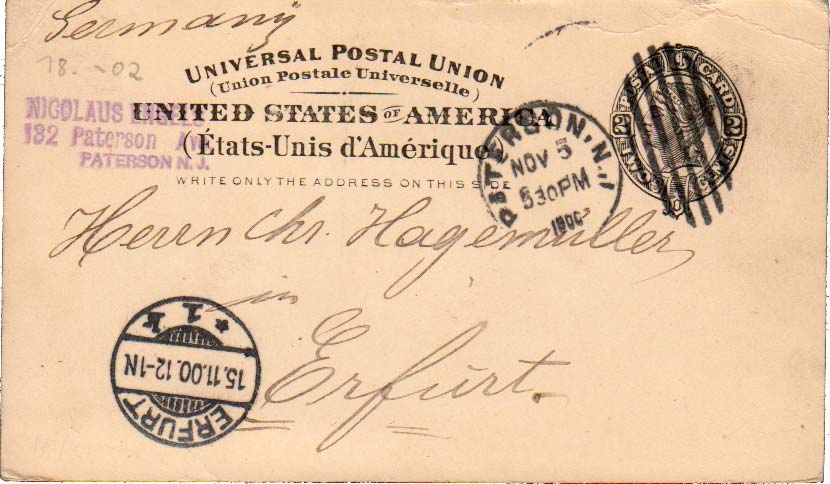 Germany
18. -02
UNIVERSAL POSTAL UNION
(Union Postale Universelle)
UNITED STATES OF AMERICA
(États-Unis d'Amérique
WRITE ONLY THE ADDRESS ON THIS SIDE
NICOLAUS
132 Paterson Av
PATERSON N. J.
PATERSON, N.J.
NOV 5
530PM
1900
POSTAL CARD
2 CENTS 2
Herrn Chr. Hagemüller
in
Erfurt.
ERFURT
15.11.00.12-1N
* 1 k